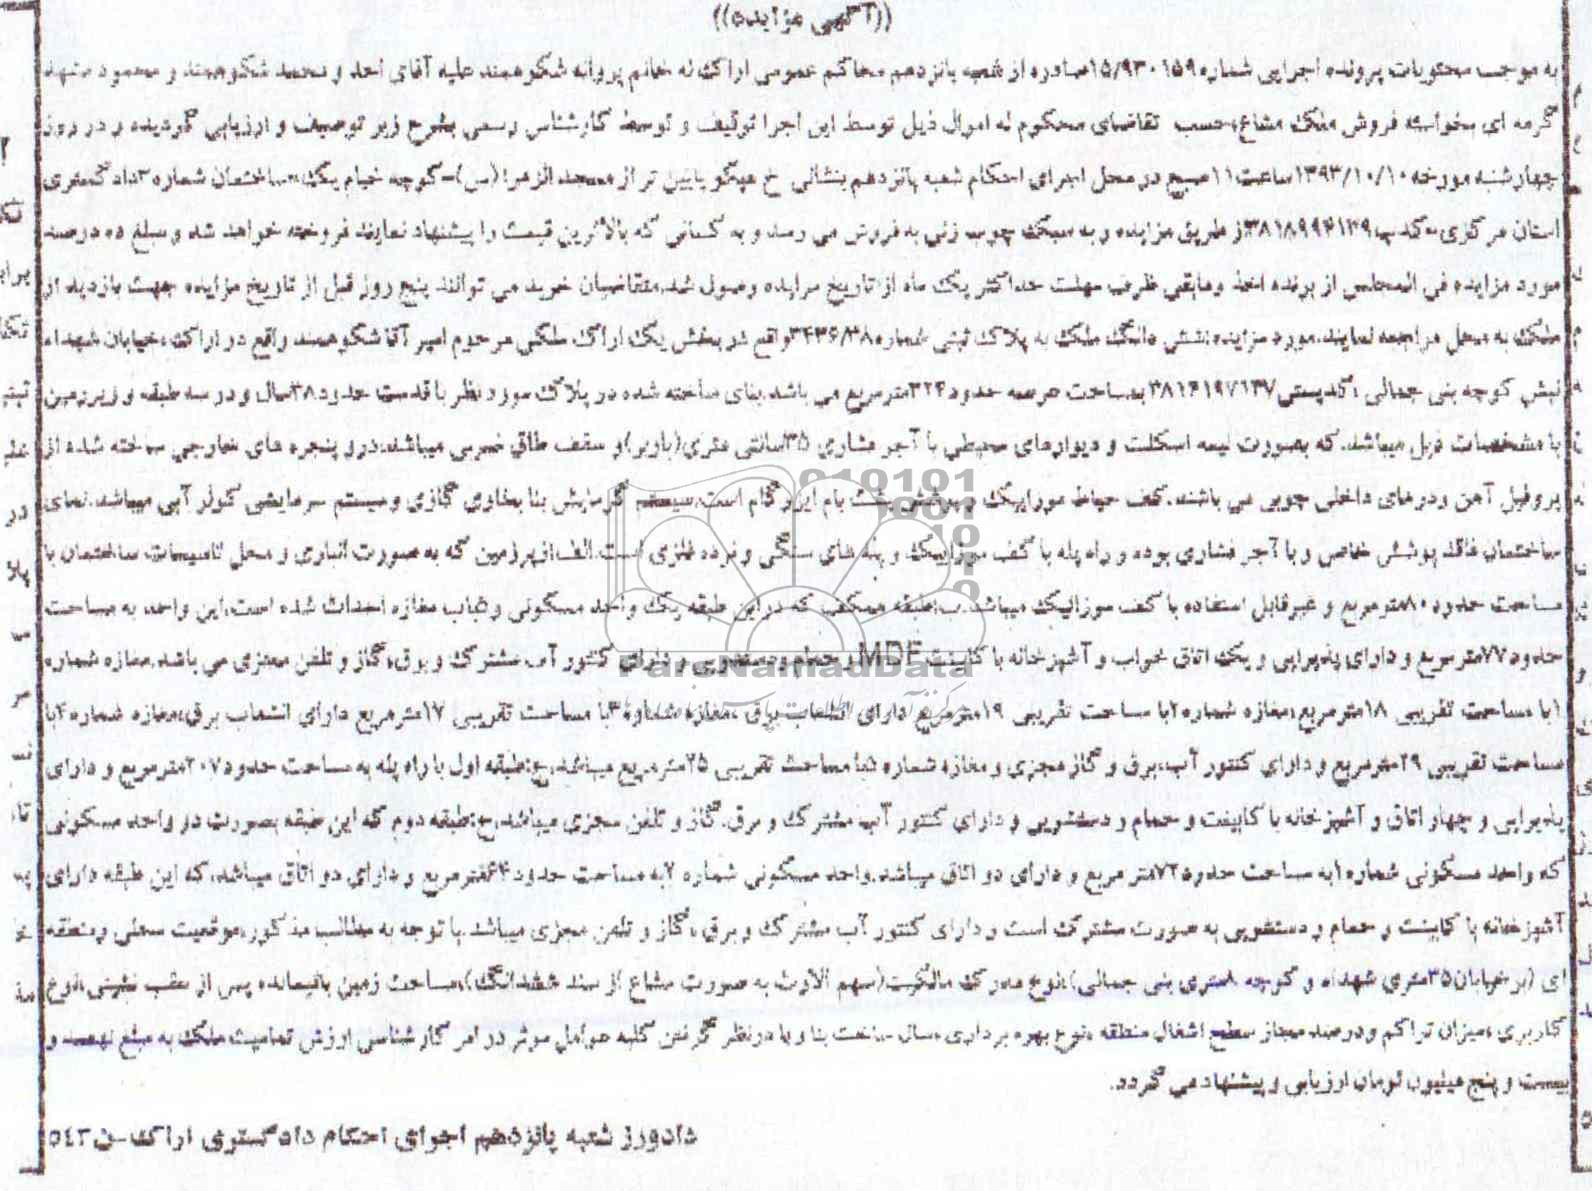 ((آگهی مزایده))
به موجب محتویات پرونده اجرایی شماره ۱۵/۹۳۰۱۵۹صادره از شعبه پانزدهم محاکم عمومی اراک له خانم پروانه شکوهمند علیه آقای احد و محمد شکوهمند و محمود مشهد
گرمه ای بخواسته فروش ملک مشاع،حسب تقاضای محکوم له اموال ذیل توسط این اجرا توقیف و توسط کارشناس رسمی بشرح زیر توصیف و ارزیابی گردیده و در روز
چهارشنبه مورخه ۱۳۹۳/۱۰/۱۰ساعت۱۱صبح در محل اجرای احکام شعبه پانزدهم بنشانی خ هپکو پایین تر از مسجد الزهرا(س)-کوچه خیام یک-ساختمان شماره۳دادگستری
استان مرکزی-کدپ۳۸۱۸۹۹۴۱۳۹از طریق مزایده و به سبک چوب زنی به فروش می رسد و به کسانی که بالاترین قیمت را پیشنهاد نمایند فروخته خواهد شد و مبلغ ده درصد
مورد مزایده فی المجلس از برنده اخذ ومابقی ظرف مهلت حداکثر یک ماه از تاریخ مزایده وصول شد.متقاضیان خرید می توانند پنج روز قبل از تاریخ مزایده جهت بازدید از
ملک به محل مراجعه نمایند.مورد مزایده:شش دانگ ملک به پلاک ثبتی شماره۳۴۳۶/۳۸واقع در بخش یک اراک ملکی مرحوم امیر آقا شکوهمند واقع در اراک ،خیابان شهداء
نبش کوچه بنی جمالی ،کدپستی۳۸۱۴۱۹۷۱۳۷بمساحت عرصه حدود۳۲۴مترمربع می باشد.بنای ساخته شده در پلاک مورد نظر با قدمت حدود۳۸سال و در سه طبقه و زیرزمین
با مشخصات ذیل میباشد.که بصورت نیمه اسکلت و دیوارهای محیطی با آجر فشاری ۳۵سانتی متری(باربر)و سقف طاق ضربی میباشد.درو پنجره های خارجی ساخته شده از
پروفیل آهن ودرهای داخلی چوبی می باشند.کف حیاط موزاییک و پوشش پشت بام ایزوگام است.سیستم گرمایش بنا بخاری گازی وسیستم سرمایشی کولر آبی میباشد.نمای
ساختمان فاقد پوشش خاصی و با آجر فشاری بوده و راه پله با کف موزاییک و پله های سنگی و نرده فلزی است.الف:زیرزمین که به صورت انباری و محل تاسیسات ساختمان با
مساحت حدود۸۰مترمربع و غیرقابل استفاده با کف موزاییک میباشد.ب:طبقه همکف که در این طبقه یک واحد مسکونی و۵باب مغازه احداث شده است.این واحد به مساحت
حدود۷۷مترمربع و دارای پذیرایی و یک اتاق خواب و آشپزخانه با کابینت MDF و حمام ودستشویی و دارای کنتور آب مشترک و برق،گاز و تلفن مجزی می باشد.مغازه شماره
۱با مساحت تقریبی ۱۸مترمربع،مغازه شماره۲با مساحت تقریبی ۱۹مترمربع دارای انشعاب برق ،مغازه شماره۳با مساحت تقریبی ۱۷مترمربع دارای انشعاب برق،مغازه شماره۴با
مساحت تقریبی ۲۹مترمربع و دارای کنتور آب،برق و گاز مجزی و مغازه شماره ۵با مساحت تقریبی ۲۵مترمربع میباشد.ج:طبقه اول با راه پله به مساحت حدود۲۰۷مترمربع و دارای
پذیرایی و چهار اتاق و آشپزخانه با کابینت و حمام و دستشویی و دارای کنتور آب مشترک و برق،گاز و تلفن مجزی میباشد.ح:طبقه دوم که این طبقه بصورت دو واحد مسکونی
که واحد مسکونی شماره۱به مساحت حدود۷۲متر مربع و دارای دو اتاق میباشد.واحد مسکونی شماره ۲به مساحت حدود۶۴مترمربع و دارای دو اتاق میباشد،که این طبقه دارای
آشپزخانه با کابینت و حمام و دستشویی به صورت مشترک است و دارای کنتور آب مشترک و برق ،گاز و تلفن مجزی میباشد.با توجه به مطالب مذکور،موقعیت محلی ومنطقه
ای (بر خیابان۳۵متری شهداء و کوچه ۸متری بنی جمالی)،نوع مدرک مالکیت(سهم الارث به صورت مشاع از سند ششدانگ)،مساحت زمین باقیمانده پس از عقب نشینی،نوع
کاربری ،میزان تراکم ودرصد مجاز سطح اشغال منطقه ،نوع بهره برداری ،سال ساخت بنا و با درنظر گرفتن کلیه عوامل موثر در امر کارشناسی ارزش تمامیت ملک به مبلغ نهصد و
بیست و پنج میلیون تومان ارزیابی و پیشنهاد می گردد.
دادورز شعبه پانزدهم اجرای احکام دادگستری اراک-ن۵۴۲
ParsNamadData